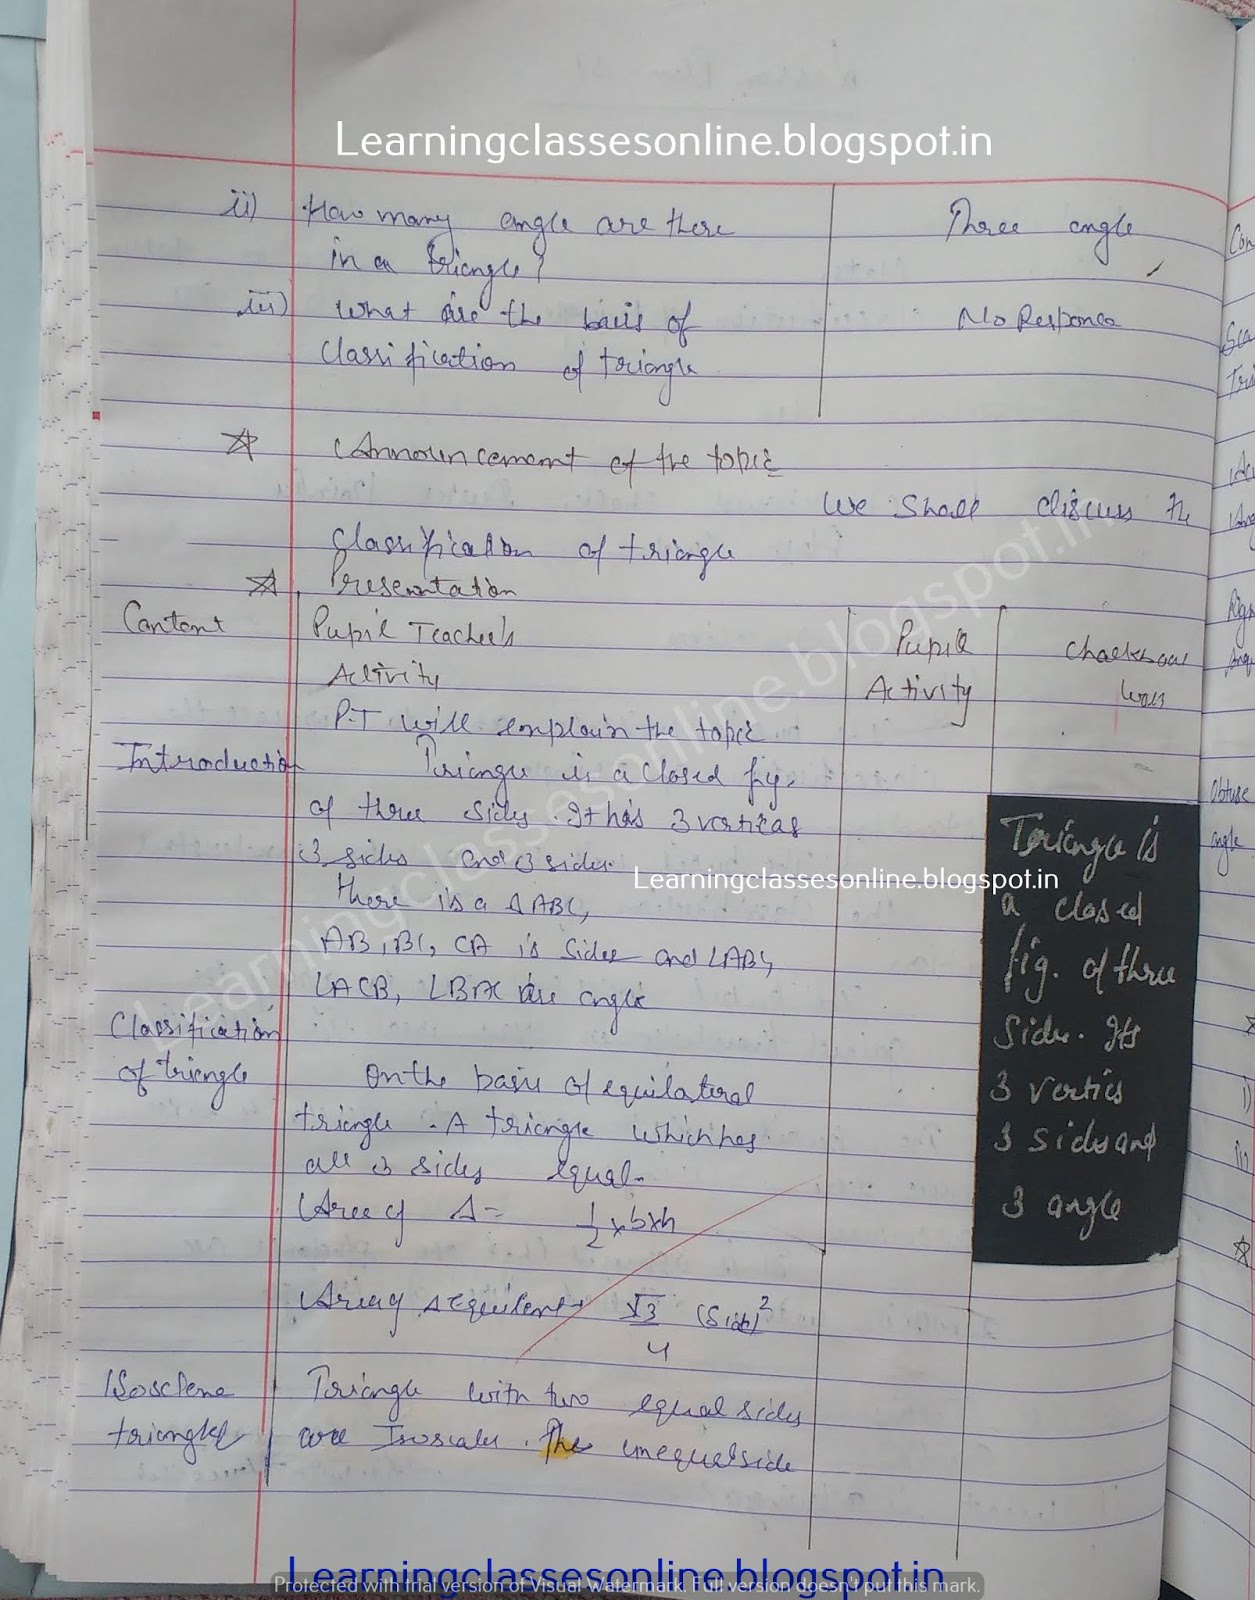 Learningclassesonline.blogspot.in
ii) How many angle are there Three angle
in a triangle?
iii) What are the basis of No Responce
Classification of triangle
Announcement of the topic
We Shall discuss the
Classification of triangle
Presentation
Content Pupil Teacher's Pupil Chalkboard
Activity Activity work
P.T will explain the topic
Introduction Triangle is a closed fig.
of three sides. It has 3 vertices
3 sides and 3 sides.
Learningclassesonline.blogspot.in
there is a ΔABC,
AB, BC, CA is sides and ∠ABC,
∠ACB, ∠BAC are angle
Triangle is
a closed
fig. of three
Side. Its
3 vertics
3 sides and
3 angle
Classification
of triangle On the basis of equilateral
triangle. A triangle which has
all 3 sides equal.
Area of Δ = 1/2 × b × h
Area of Δ √3/4 (Side)²
Isosclene Triangle with two equal sides
triangle are Isoscales. The unequal side
Learningclassesonline.blogspot.in
Learningclassesonline.blogspot.in
Protected with trial version of Visual Watermark. Full version doesn't put this mark.
Con
Sca
Tri
Acu
Ang
Obtuse
angle